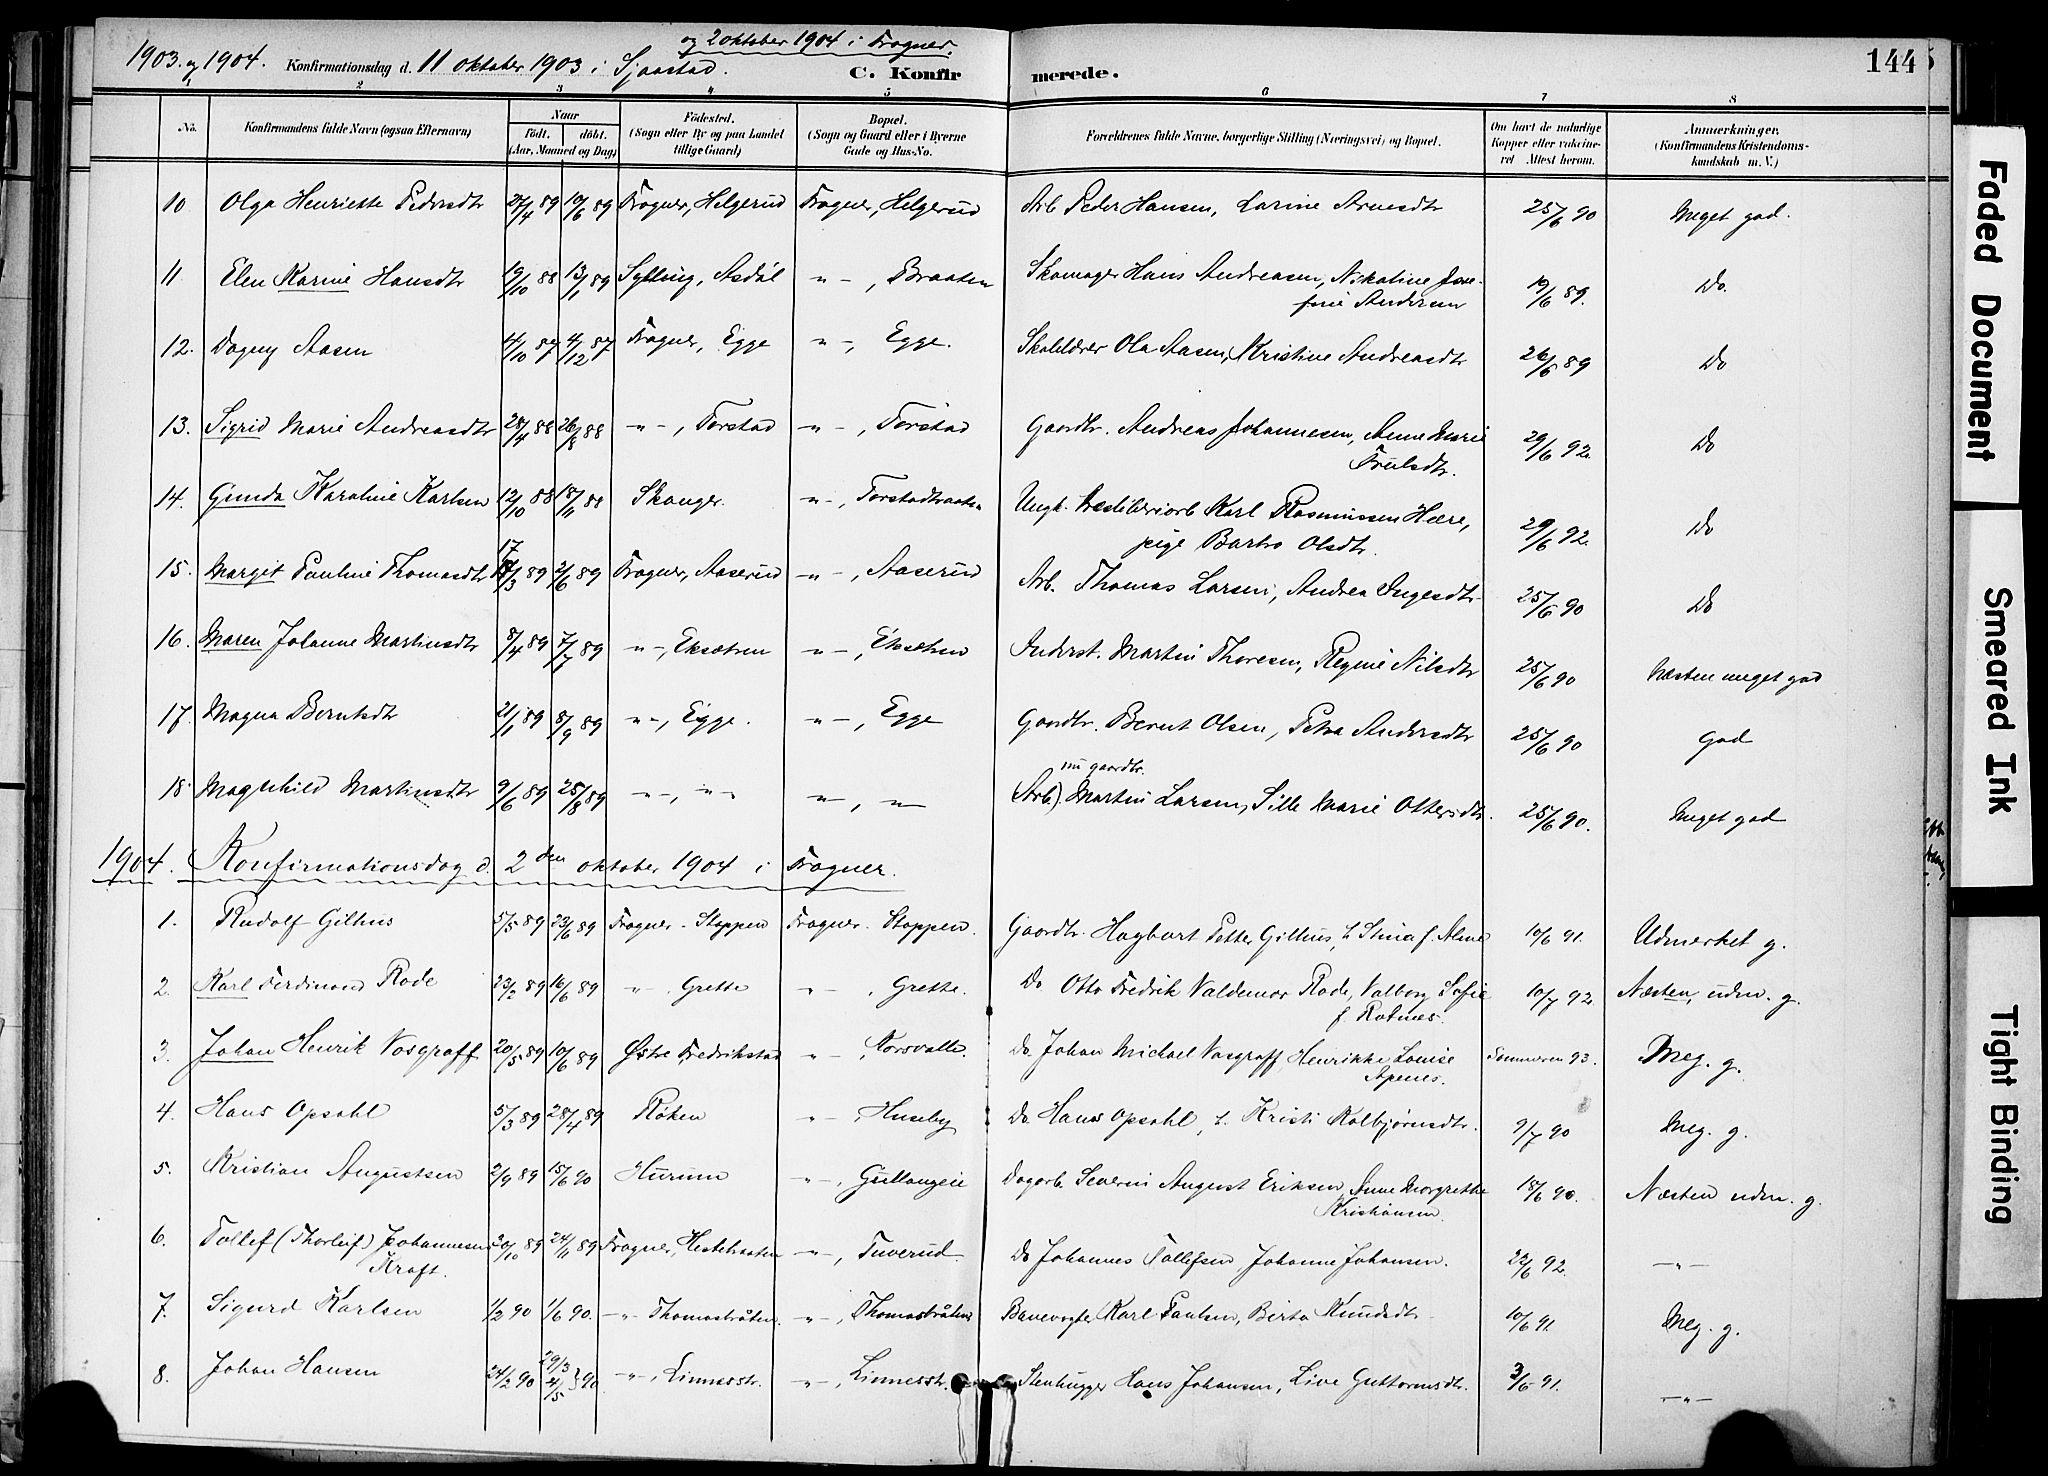 1903. og 1904. Konfirmationsdag d. 11 oktober 1903 i Sjaastad. og 2 oktober 1904 i Frogner. C. Konfirmerede. 144
1 2 3 4 5 6 7 8
No. Konfirmandens fulde Navn (ogsaa Efternavn) Naar født. døbt. (Aar, Maaned og Dag) Fødested. (Sogn eller By og paa Landet tillige Gaard) Bopæl. (Sogn og Gaard eller i Byerne Gade og Hus-No. Forældrenes fulde Navne, borgerlige Stilling (Næringsvei) og Bopæl. Om havt de naturlige Kopper eller vaccineret Attest herom. Anmærkninger. (Konfirmandens Kristendomskundskab m. V.)
10 Olga Henriette Pedersdtr 27/4 89 10/6 89 Frogner, Helgerud Frogner, Helgerud Arb. Peder Hansen, Larine Arnesdtr 25/6 90 Meget god.
11 Elen Karine Hansdtr 19/10 88 13/1 89 Sylling, Asdøl " -, Braaten Skomager Hans Andreasen, Nikoline Josefine Andersen 19/6 89. Do.
12. Dagny Aasen 4/10 87 4/12 87 Frogner, Egge " -, Egge. Skolelærer Ola Aasen, Kristine Andreasdtr 26/6 89 Do
13. Sigrid Marie Andreasdtr 28/4 88 26/8 88 " -, Torstad " -, Torstad Gaardbr. Andreas Johannesen, Anne Marie Trulsdtr. 29/6 92. Do
14. Gunda Karoline Karlsen 12/10 88 18/11 88 Skoger. " -, Torstadbraaten Ungk. Træsliberiarb Karl Rasmussen Hære, pige Barbro Olsdtr. 29/6 92. Do
15. Margit Pauline Thomasdtr 17/3 89 2/6 89 Frogner, Aaserud " -, Aaserud Arb. Thomas Larsen, Andrea Ingesdtr 25/6 90 Do
16. Maren Johanne Martinsdtr 8/4 89 7/7 89 " -, Eksætren " -, Eksætren Inderst. Martin Thoresen, Regine Nilsdtr 25/6 90 Næsten meget god
17. Magna Berntsdtr 21/1 89 8/9 89 " -, Egge. " -, Egge Gaardbr. Bernt Olsen, Petra Andersdtr 25/6 90 God
18. Magnhild Martinsdtr 9/6 89 25/8 89 " -, " - " -, " - (Arb.) nu gaardbr. Martin Larsen, Sille Marie Ottersdtr. 25/6 90. Meget god
1904. Konfirmationsdag d. 2den oktober 1904 i Frogner.
1. Rudolf Gilhus 5/5 89 23/6 89 Frogner - Stoppen Frogner. Stoppen. Gaardbr. Hagbart Petter Gilhus, h. Stina f. Alme 10/6 91. Udmerket g.
2. Karl Ferdinand Rode 23/2 89 16/6 89 " - , Grette " - , Grette. Do Otto Fredrik Valdemar Rode, Valborg Sofie f. Rotnes. 10/7 92. Næsten udm. g.
3. Johan Henrik Vosgraff 20/5 89 10/6 89 Østre Fredrikstad " - , Korsvalle Do. Johan Michael Vosgraff, Henrikke Louise Apenes. Sommeren 93. Meg. g.
4. Hans Opsahl 5/3 89 28/4 89 Røken " - , Huseby Do. Hans Opsahl, h. Kristi Kolbjørnsdtr. 9/7 90 Meg. g.
5. Kristian Augustsen 2/9 89 15/6 90 Hurum " - , Gullaugeie Dagarb. Severin August Eriksen, Anne Margrethe Kristiansen. 18/6 90. Næsten udm. g.
6. Tollef (Thorleif) Johannesen Kraft. 30/10 89 24/11 89 Frogner, Hestebraaten " -, Tuverud. Do Johannes Tollefsen, Johanne Johansen. 22/6 92. - " -
7. Sigurd Karlsen 1/2 90 1/6 90. - " - Thomasbråten. " -, Thomasbråten Banevogter Karl Paulsen, Birta Knudsdtr 10/6 91 Meg. g.
8. Johan Hansen 24/2 90 29/3 4/5 } 90. " -, Linnesstr. " -, Linnesstr. Stenhugger Hans Johansen, Live Guttormsdtr. 3/6 91. - " -
Faded Document
Smeared Ink
Tight Binding